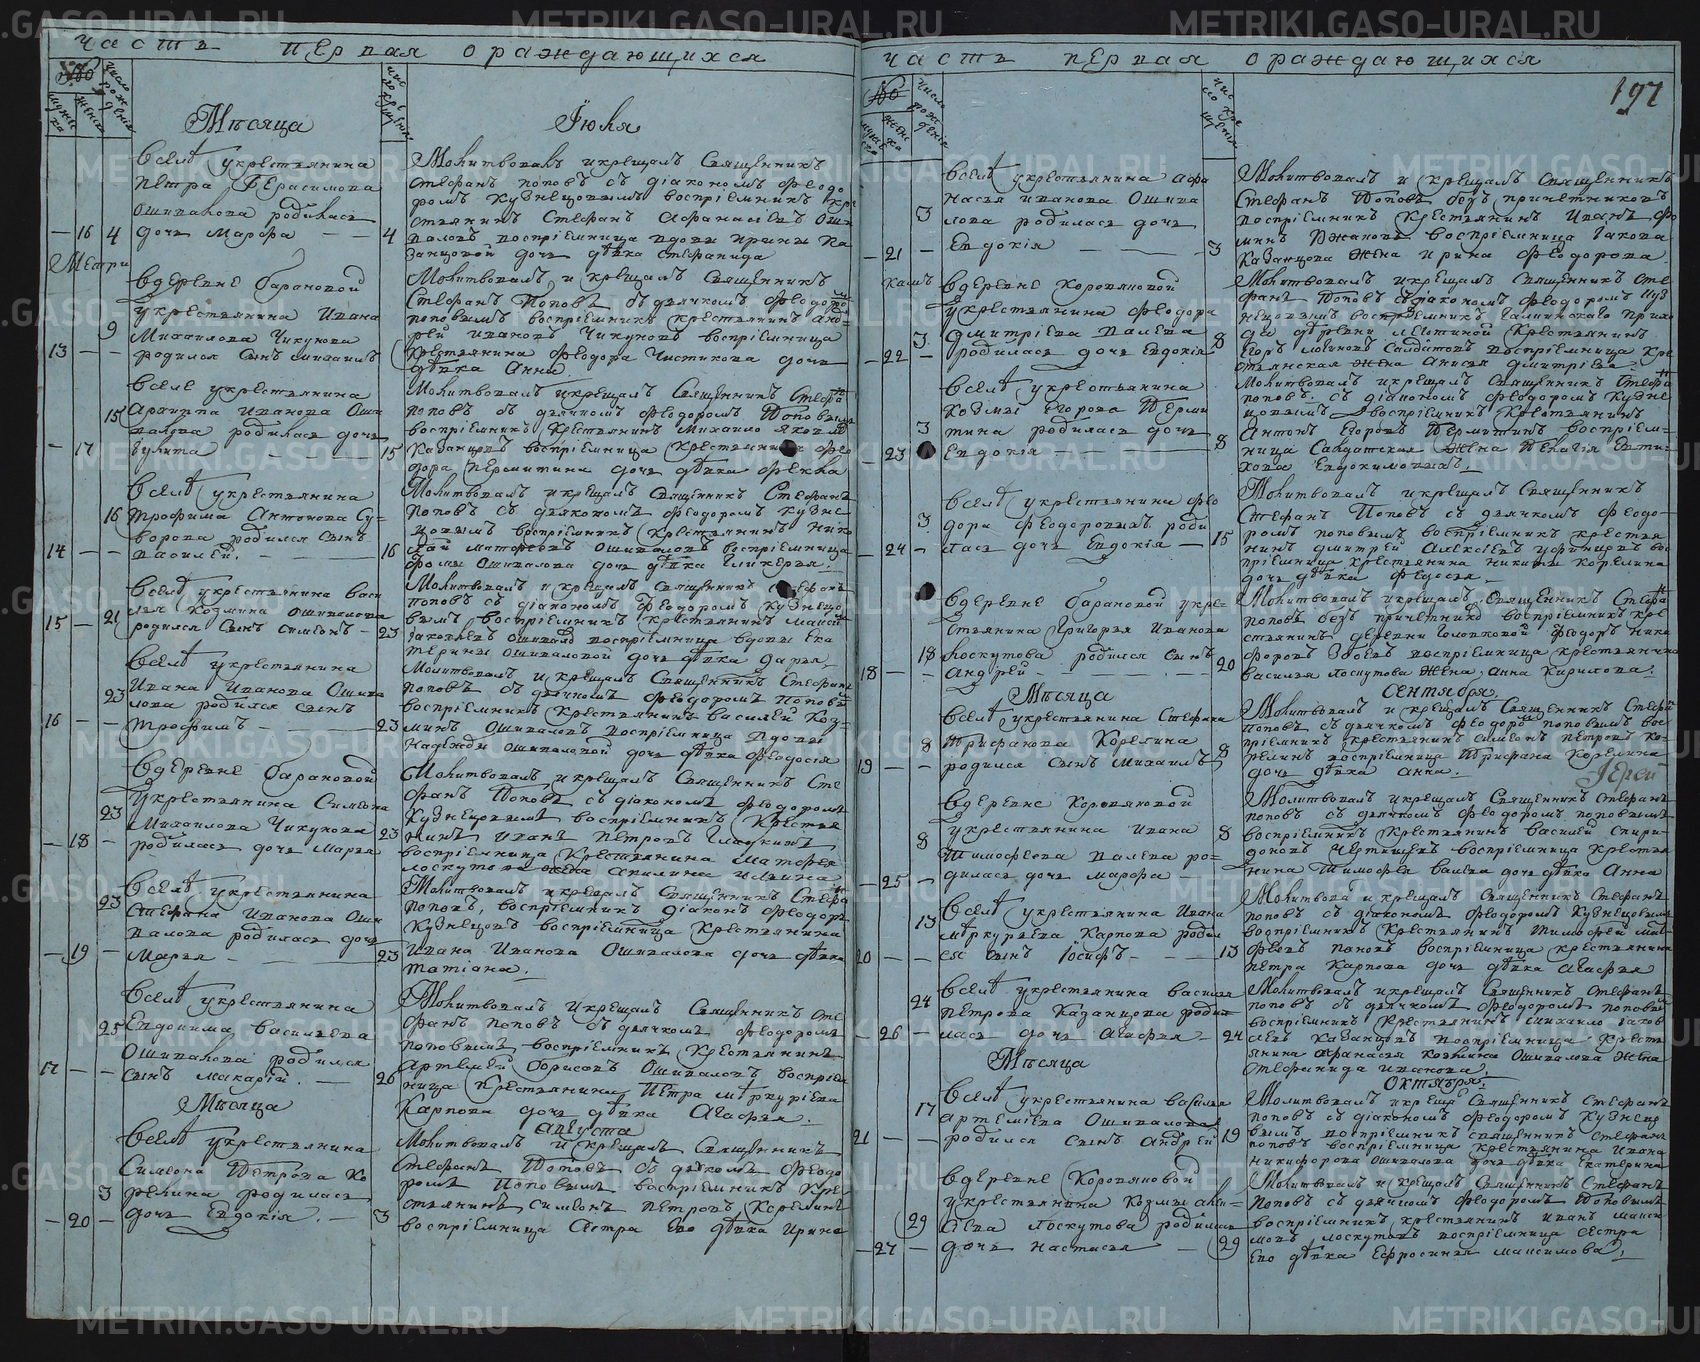 часть первая ораждающихся
Мѣсяца Іюля
Вселѣ укрестьянина
Петра Герасимова
Ошивалова родилась
16 4 дочь Марфа 4
Молитвовалъ и крещалъ Священникъ
Стефанъ Поповъ съ діакономъ Феодо
ромъ Кузнецовымъ воспріемникъ кре
стьянинъ Стефанъ Афанасіевъ Оши
валовъ воспріемница вдовы Ирины Ка
занцовой дочь дѣвка Стефанида
Метри
Вдеревне Барановой
укрестьянина Ивана
9 Михайлова Чикунова
13 родился сынъ Михаилъ
Молитвовалъ и крещалъ Священникъ
Стефанъ Поповъ съ дьячкомъ Феодоромъ
поповымъ воспріемникъ крестьянинъ Анд
рей Ивановъ Чикуновъ воспріемница
крестьянина Феодора Чистикова дочь
дѣвка Анна
Вселе укрестьянина
Архиппа Иванова Оши
15 валова родилась дочь
17 Іулита 15
Молитвовалъ и крещалъ Священникъ Стефанъ
поповъ съ дьячкомъ Феодоромъ Поповымъ
воспріемникъ крестьянинъ Михаило Яковлевъ
Казанцовъ воспріемница крестьянина Фео
дора дочь дѣвка Фекла
Вселѣ укрестьянина
16 Трофима Антонова Су
ворова родился сынъ
14 Василей. 16
Молитвовалъ и крещалъ Священникъ Стефанъ
Поповъ с дьякономъ Феодоромъ Кузне
цовымъ воспріемникъ крестьянинъ Нико
лай Матфеевъ Ошиваловъ воспріемница
Фомы Ошивалова дочь дѣвка Гликерья.
Вселѣ укрестьянина Васи
лья Козмина Ошивалова
15 21 родился сынъ Симеонъ 23
Молитвовалъ и крещалъ Священникъ Стефанъ
поповъ съ діакономъ Феодоромъ Кузнецо
вымъ воспріемникъ крестьянинъ
Іаковлевъ Ошиваловъ воспріемница вдовы Ека
терины Ошиваловой дочь дѣвка Дарья
Вселѣ укрестьянина
23 Ивана Иванова Ошива
лова родился сынъ
16 Трофимъ 23
Молитвовалъ и крещалъ Священникъ Стефанъ
поповъ съ дьячкомъ Феодоромъ Поповымъ
воспріемникъ крестьянинъ Василей Коз
минъ Ошиваловъ воспріемница вдовы
Надежды Ошиваловой дочь дѣвка Феодосія
Вдеревне Барановой
укрестьянина Симеона
23 Михайлова Чикунова
18 родилась дочь Марья 23
Молитвовалъ и крещалъ Священникъ Сте
фанъ Поповъ съ діакономъ Феодоромъ
Кузнецовымъ воспріемникъ крестья
нинъ Иванъ Петровъ
воспріемница крестьянина Матфея
Лоскутова жена Акилина Ильина
Вселѣ укрестьянина
23 Стефана Иванова Оши
валова родилась дочь
19 Марья 23
Молитвовалъ и крещалъ Священникъ Стефанъ
Поповъ, воспріемникъ діаконъ Феодоръ
Кузнецовъ воспріемница крестьянина
Ивана Иванова Ошивалова дочь дѣвка
Татіана.
Вселѣ укрестьянина
25 Евдокима Васильева
Ошивалова родился
17 сынъ Макарій. 26
Молитвовалъ и крещалъ Священникъ Сте
фанъ поповъ съ дьячкомъ Феодоромъ
поповымъ воспріемникъ крестьянинъ
Артемей Борисовъ Ошиваловъ воспріем
ница крестьянина Петра Меркуріева
Карпова дочь дѣвка Агафья.
Мѣсяца Августа
Вселѣ укрестьянина
Симеона Петрова Ко
3 релина родилась
20 дочь Евдокія. 3
Молитвовалъ и крещалъ Священникъ
Стефанъ Поповъ съ дьячкомъ Феодо
ромъ Поповымъ воспріемникъ кре
стьянинъ Симеонъ Петровъ Корелинъ
воспріемница Сестра Ево дѣвка Ирина
часть первая ораждающихся
197
Вселѣ укрестьянина Афа
насья Иванова Ошива
3 лова родилась дочь
21 Евдокія 3
Молитвовалъ и крещалъ Священникъ
Стефанъ Поповъ безъ причетниковъ
воспріемникъ крестьянинъ Иванъ Фо
минъ воспріемница Іакова
Казанцова жена Ирина Феодорова.
камъ
Вдеревне Коровяковой
укрестьянина Феодора
3 Дмитріева Валева
22 родилась дочь Евдокія 8
Молитвовалъ и крещалъ Священникъ Сте
фанъ Поповъ съ діакономъ Феодоромъ Куз
нецовымъ воспріемникъ Галкинскаго прихо
да деревни крестьянинъ
Егоръ Салдатовъ воспріемница кре
стьянская жена Анисья Дмитріева.
Вселѣ укрестьянина
Козмы Егорова Перми
3 тина родилась дочь
23 Евдокія 8
Молитвовалъ и крещалъ Священникъ Стефанъ
поповъ съ діакономъ Феодоромъ Кузне
цовымъ воспріемникъ крестьянинъ
Антонъ Егоровъ Пермитинъ воспріем
ница Салдатская жена Пелагія
Евдокимовыхъ.
Вселѣ укрестьянина Фео
3 дора Феодоровыхъ роди
24 лась дочь Евдокія 15
Молитвовалъ и крещалъ Священникъ
Стефанъ Поповъ съ дьячкомъ Феодо
ромъ поповымъ воспріемникъ крестья
нинъ Дмитрей Алексіевъ Уфинцовъ вос
пріемница крестьянина Никиты Корелина
дочь дѣвка Федосья
Вдеревне Барановой укре
стьянина Григорья Иванова
18 Лоскутова родился сынъ
18 Андрей 20
Молитвовалъ и крещалъ Священникъ Стефанъ
Поповъ безъ причетниковъ воспріемникъ кре
стьянинъ деревни Головковой Федоръ Ники
форовъ Зобевъ воспріемница крестьянина
Василья Лоскутова жена Анна Кирилова.
Мѣсяца Сентября.
Вселѣ укрестьянина Стефана
8 Трифанова Корелина
19 родился сынъ Михаилъ 8
Молитвовалъ и крещалъ Священникъ Стефанъ
поповъ съ дьячкомъ Феодоромъ поповымъ вос
пріемникъ крестьянинъ Симеонъ Петровъ Ко
релинъ воспріемница Трифана Корелина
дочь дѣвка Анна.
Іерей
Вдеревне Коровяковой
укрестьянина Ивана
8 Тимофеева Валева ро
25 дилась дочь Марфа 8
Молитвовалъ и крещалъ Священникъ Стефанъ
поповъ съ дьячкомъ Феодоромъ поповымъ
воспріемникъ крестьянинъ Василей Спири
доновъ Чертищевъ воспріемница крестья
нина Тимофея Валева дочь дѣвка Анна
Вселѣ укрестьянина Ивана
13 Меркурьева Карпова родил
20 ся сынъ Іосифъ 13
Молитвовалъ и крещалъ Священникъ Стефанъ
поповъ съ діакономъ Феодоромъ Кузнецовымъ
воспріемникъ крестьянинъ Тимофей Мат
феевъ Пановъ воспріемница крестьянина
Петра Карпова дочь дѣвка Агафья
Вселѣ укрестьянина Василья
24 Петрова Казанцова роди
26 лась дочь Агафья 24
Молитвовалъ и крещалъ Священникъ Стефанъ
поповъ съ дьячкомъ Феодоромъ поповымъ
воспріемникъ крестьянинъ Михаило Іаков
левъ Казанцовъ воспріемница кресть
янина Афанасья Козмина Ошивалова жена
Стефанида Иванова.
Мѣсяца Октября.
Вселѣ укрестьянина Василья
17 Артеміева Ошивалова
21 родился сынъ Андрей 19
Молитвовалъ и крещалъ Священникъ Стефанъ
поповъ съ діакономъ Феодоромъ Кузнец
вымъ воспріемникъ священникъ Стефанъ
поповъ воспріемница крестьянина Ивана
Никифорова Ошивалова дочь дѣвка Екатерина
Вдеревне Коровяковой
укрестьянина Козмы Аки
29 Лоскутова родилась
27 дочь Настасья 29
Молитвовалъ и крещалъ Священникъ Стефанъ
Поповъ съ дьячкомъ Феодоромъ Поповымъ
воспріемникъ крестьянинъ Иванъ Макси
мовъ Лоскутовъ воспріемница Сестра
Ево дѣвка Ефросинья Максимова.
METRIKI.GASO-URAL.RU